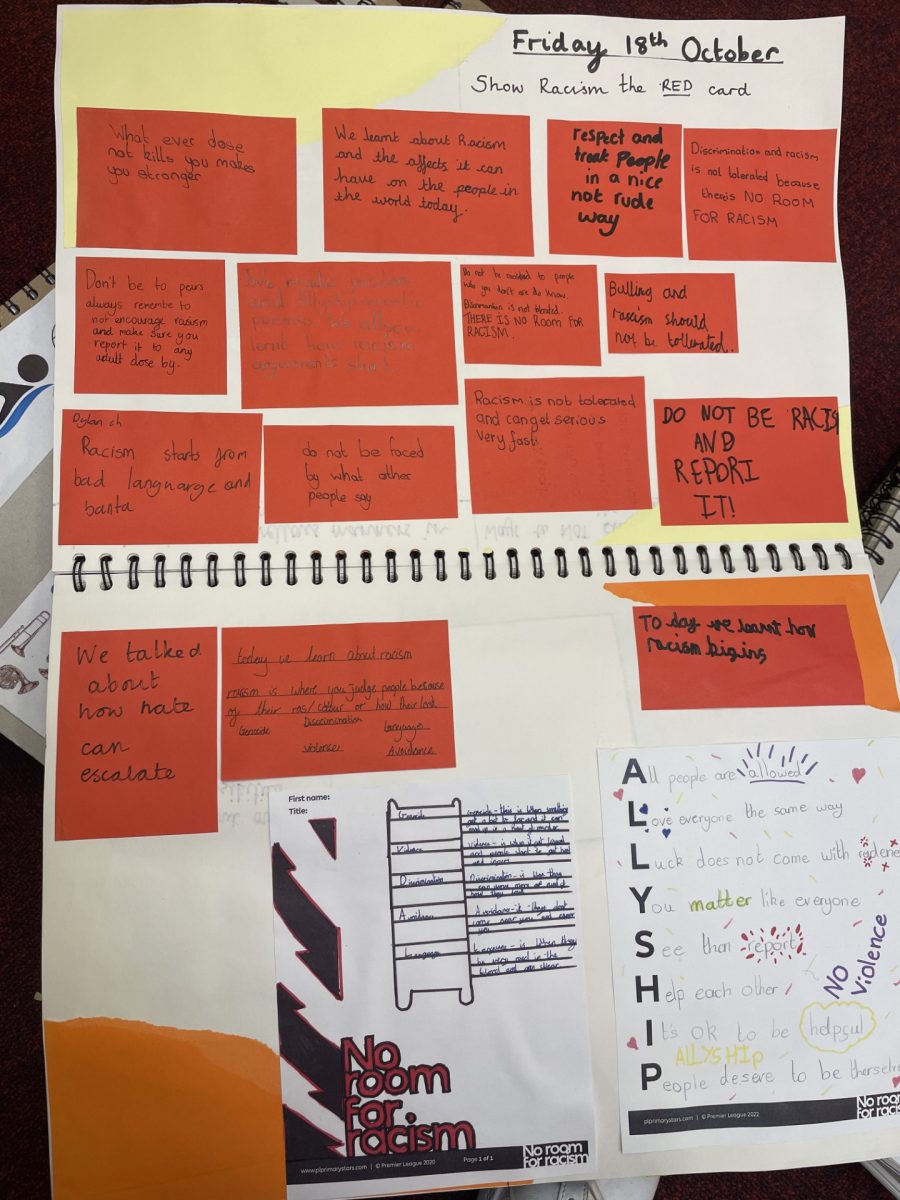 Friday 18th October
Show Racism the RED card
What ever dose
not kills you makes
you stronger
We learnt about Racism
and the affects it can
have on the people in
the world today.
respect and
treat People
in a nice
not rude
way
Discrimination and racism
is not tolerated because
theris NO ROOM
FOR RACISM
Don't be to pears
always remembe to
not encourage rasism
and make sure you
report it to any
adult dose by.
We made posters
and Allyship
learnt how racism
arguments start.
Do not be
to people
who you don't
know.
is not
THERE IS NO ROOM FOR
RACISM.
Bulling and
rasism should
not be tollerated.
Dylan ch
Racism starts from
bad languarge and
banta
do not be faced
by what other
people say
Racism is not tolerated
and can get serious
very fast.
DO NOT BE RACIS
AND
REPORT
IT!
We talked
about
how hate
can
escalate
today we learn about racism
racism is where you judge people because
of their ras/colour or how their look
Genocide Discrimination Language
violence Avoidance
TO day we learnt how
racism bigins
First name:
Title:
Genocide
Violence
Discrimination
Avoidance
Language
No
room
for
racism
www.plprimarystars.com | © Premier League 2020 Page 1 of 1
No room
for racism
All people are allowed
Love everyone the same way
Luck does not come with
You matter like everyone
See than report
Help each other
It's ok to be helpful
People deserve to be themselve
ALLYSHIP
No
Violence
plprimarystars.com | © Premier League 2022
No room
for racis